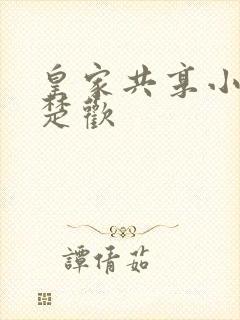 皇家共享小
楚歡
譚倩茹